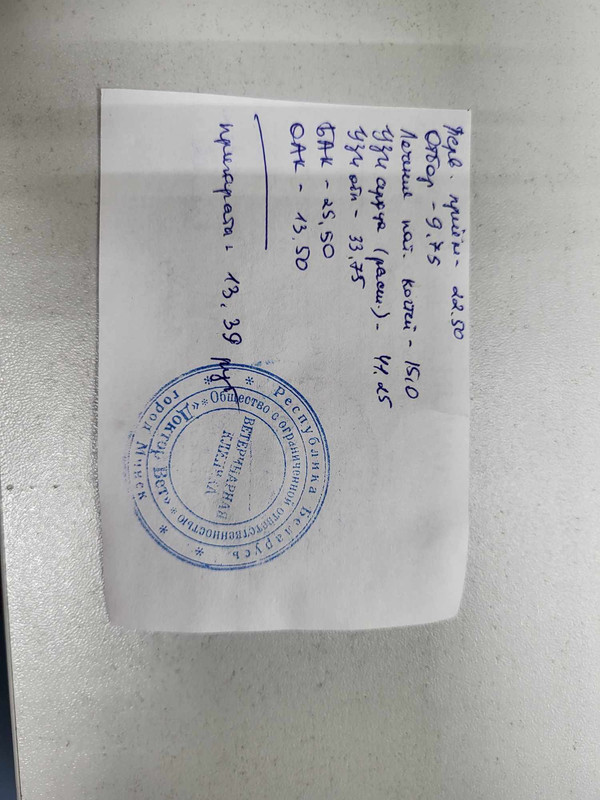 Перв. приём - 22.50
Отбор - 9,75
Лечение пат. когтей - 15,0
Узи сердца (расш.) - 41.25
Узи обп - 33,75
БАК - 25,50
ОАК - 13,50
препарата - 13,39 руб
* Республика Беларусь *
* город Минск *
* Общество с ограниченной ответственностью *
«Доктор Вет»
ВЕТЕРИНАРНАЯ
КЛИНИКА